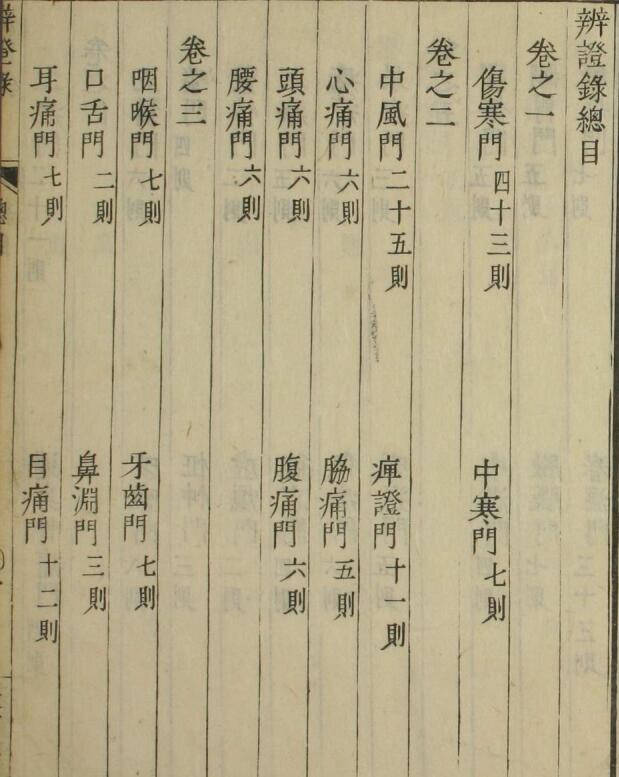 辨證錄總目
卷之一
傷寒門 四十三則 中寒門 七則
卷之二
中風門 二十五則 痺證門 十一則
心痛門 六則 脇痛門 五則
頭痛門 六則 腹痛門 六則
腰痛門 六則
卷之三
咽喉門 七則 牙齒門 七則
口舌門 二則 鼻淵門 三則
耳痛門 七則 目痛門 十二則
辨證錄 總目